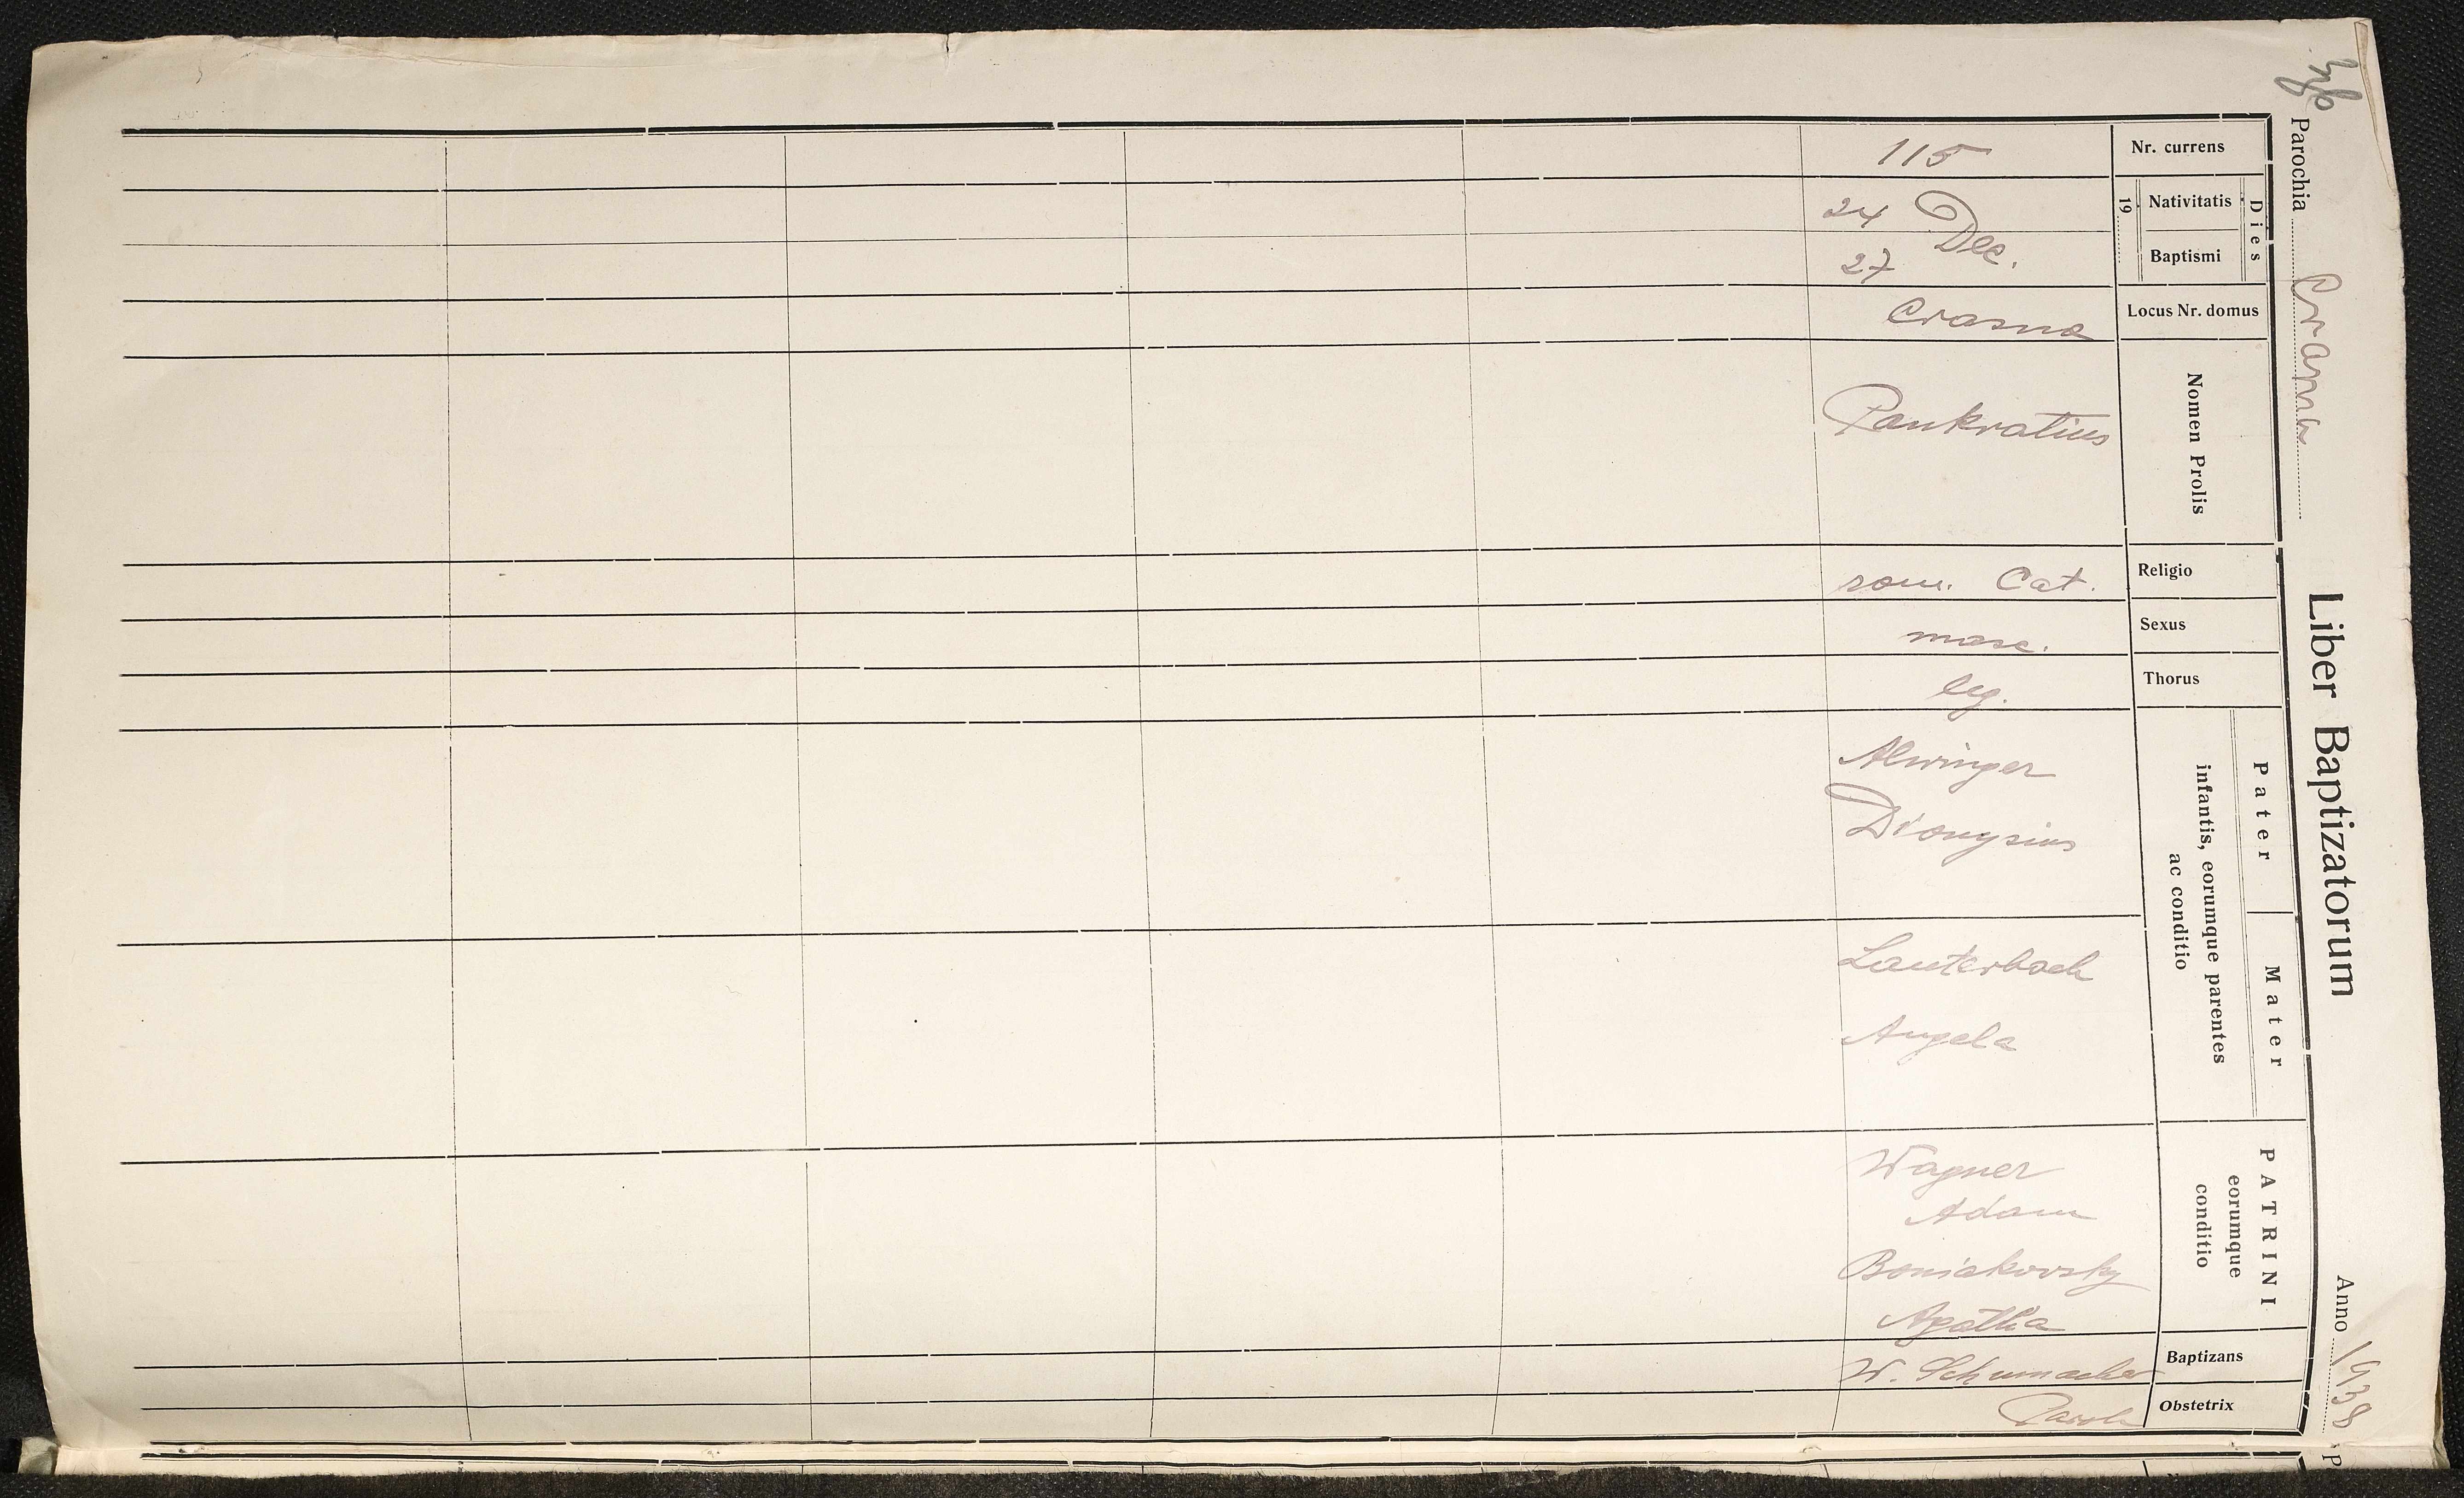 Parochia Crasna
Liber Baptizatorum
Anno 1938
Nr. currens
115
Dies
19
Nativitatis
24 Dec.
Baptismi
27
Locus Nr. domus
Crasna
Nomen Prolis
Pankratius
Religio
rom. Cat.
Sexus
masc.
Thorus
leg.
Pater
Mater
infantis, eorumque parentes
ac conditio
Alwinger
Dionysius
Lauterbach
Angela
PATRINI
eorumque
conditio
Wagner
Adam
Boniakovsky
Agatha
Baptizans
W. Schumacher
Obstetrix